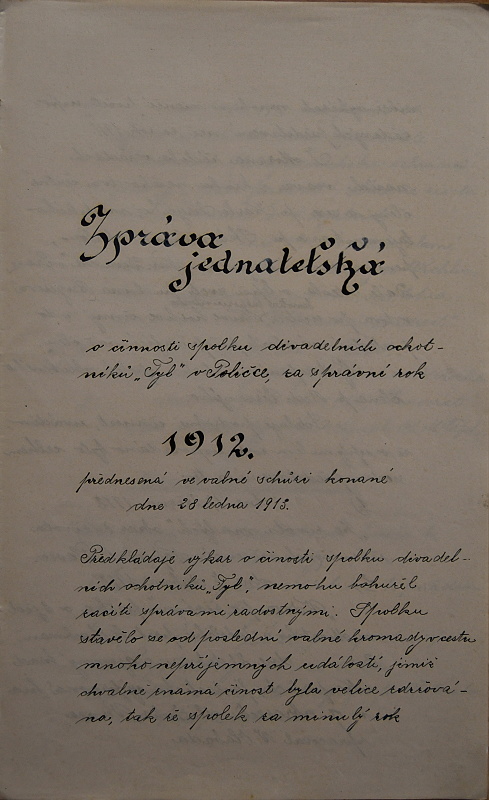 Zpráva
jednatelská
o činnosti spolku divadelních ochot-
níků „Tyl" v Poličce, za správní rok
1912.
přednesená ve valné schůzi konané
dne 28 ledna 1913.
Předkládaje výkaz o činosti spolku divadel-
ních ochotníků „Tyl", nemohu bohužel
začíti správami radostnými. Spolku
stavělo se od poslední valné hromady v cestu
mnoho nepříjemných událostí, jimiž
chvalně známá činost byla velice zdržová-
na, tak že spolek za minulý rok